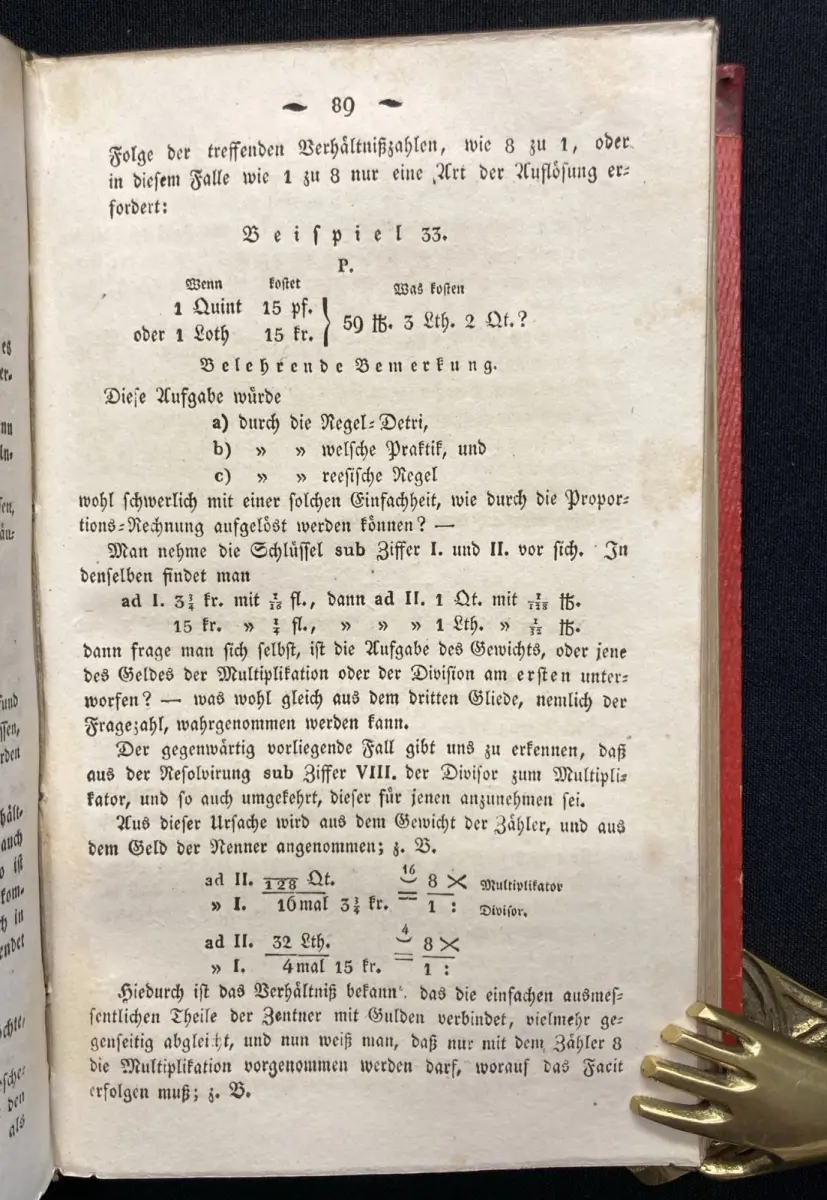 ~ 89 ~
Folge der treffenden Verhältnißzahlen, wie 8 zu 1, oder
in diesem Falle wie 1 zu 8 nur eine Art der Auflösung er=
fordert:
Beispiel 33.
P.
Wenn kostet Was kosten
1 Quint 15 pf.
oder 1 Loth 15 kr. } 59 ℔. 3 Lth. 2 Qt.?
Belehrende Bemerkung.
Diese Aufgabe würde
a) durch die Regel=Detri,
b) » » welsche Praktik, und
c) » » reesische Regel
wohl schwerlich mit einer solchen Einfachheit, wie durch die Propor=
tions=Rechnung aufgelöst werden können? —
Man nehme die Schlüssel sub Ziffer I. und II. vor sich. In
denselben findet man
ad I. 3¾ kr. mit 1/16 fl., dann ad II. 1 Qt. mit 1/128 ℔.
15 kr. » ¼ fl., » » » 1 Lth. » 1/32 ℔.
dann frage man sich selbst, ist die Aufgabe des Gewichts, oder jene
des Geldes der Multiplikation oder der Division am ersten unter=
worfen? — was wohl gleich aus dem dritten Gliede, nemlich der
Fragezahl, wahrgenommen werden kann.
Der gegenwärtig vorliegende Fall gibt uns zu erkennen, daß
aus der Resolvirung sub Ziffer VIII. der Divisor zum Multipli=
kator, und so auch umgekehrt, dieser für jenen anzunehmen sei.
Aus dieser Ursache wird aus dem Gewicht der Zähler, und aus
dem Geld der Nenner angenommen; z. B.
16
ad II. 128 Qt. 8 × Multiplikator
» I. 16mal 3¾ kr. = 1 : Divisor.
4
ad II. 32 Lth. 8 ×
» I. 4mal 15 kr. = 1 :
Hiedurch ist das Verhältniß bekann. das die einfachen ausmes=
sentlichen Theile der Zentner mit Gulden verbindet, vielmehr ge=
genseitig abgleicht, und nun weiß man, daß nur mit dem Zähler 8
die Multiplikation vorgenommen werden darf, worauf das Facit
erfolgen muß; z. B.